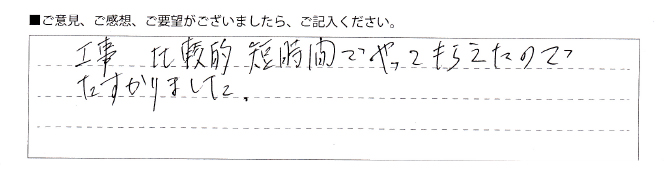 ■ご意見、ご感想、ご要望がございましたら、ご記入ください。
工事 比較的 短時間でやってもらえたので
たすかりました。